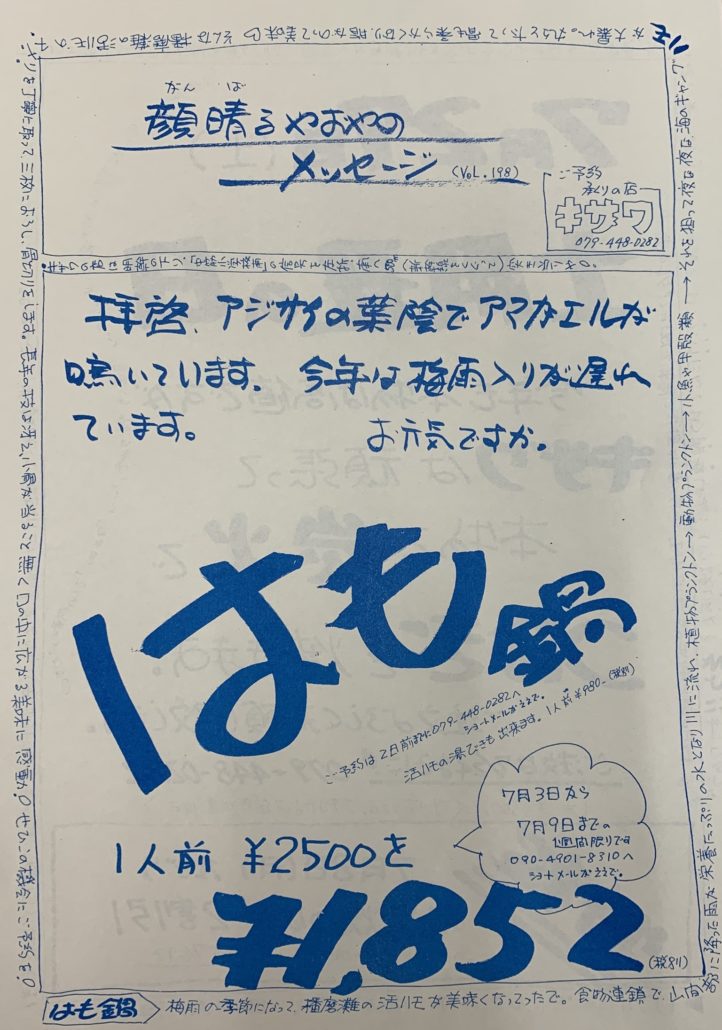 がん ば
顔晴るやおやの
メッセージ (VOL.198)
ご予約
承くりの店
キサワ
079-448-0282
拝啓、アジサイの葉陰でアマガエルが
鳴いています。 今年は梅雨入りが遅れ
ています。 お元気ですか。
はも鍋
ご予約は2日前までに079-448-0282へ
ショートメールがええで。
活ハモの湯びきも出来ます。1人前¥980-(税別)
7月3日から
7月9日までの
1週間限りです
090-4901-8310へ
ショートメールがええで。
1人前 ¥2500を
¥1,852
(税別)
はも鍋 梅雨の季節になって、播磨灘の活ハモが美味くなってったで。食物連鎖で、山間部
に降った雨が栄養たっぷりの水となり川に流れ、植物プランクトン→動物プランクトン→小魚や甲殻類→それを狙って夜な夜な海のギャング
ハモ
骨も柔らかくなり、脂がのって美味
そんな播磨灘の活ハモの
丁寧に取って、三枚におろし、骨切りをします。長年の技は冴え、小骨が当ること無く口の中に広がる美味に感動。ぜひこの機会にご予約を。